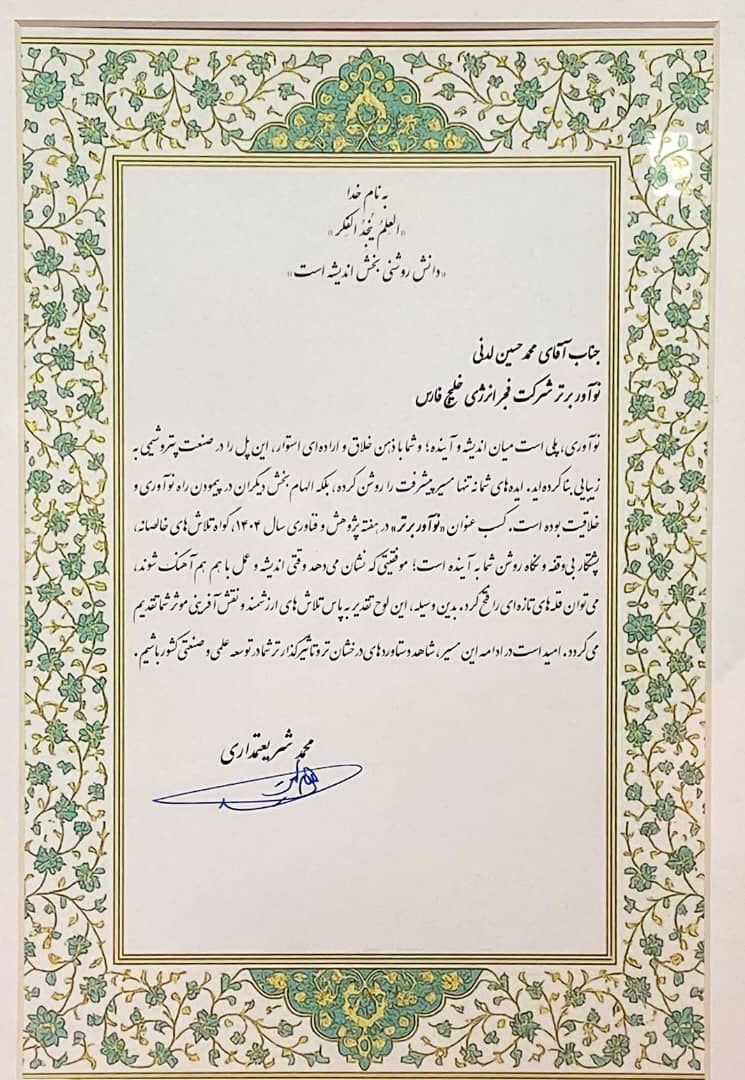 به نام خدا
«العِلمُ یُنجِدُ الفِکر»
«دانش روشنی بخش اندیشه است»
جناب آقای محمد حسین لدنی
نوآور برتر شرکت فجر انرژی خلیج فارس
نوآوری، پلی است میان اندیشه و آینده؛ و شما با ذهن خلاق و اراده‌ای استوار، این پل را در صنعت پتروشیمی به
زیبایی بنا کرده‌اید. ایده‌های شما نه تنها مسیر پیشرفت را روشن کرده، بلکه الهام بخش دیگران در پیمودن راه نوآوری و
خلاقیت بوده است. کسب عنوان «نوآور برتر» در هفته پژوهش و فناوری سال ۱۴۰۴، گواه تلاش‌های خالصانه،
پشتکار بی‌وقفه و نگاه روشن شما به آینده است؛ موفقیتی که نشان می‌دهد وقتی اندیشه و عمل با هم هم آهنگ شوند،
می‌توان قله‌های تازه‌ای را فتح کرد. بدین وسیله، این لوح تقدیر به پاس تلاش‌های ارزشمند و نقش آفرینی موثر شما تقدیم
می‌گردد. امید است در ادامه این مسیر، شاهد دستاوردهای درخشان تر و تاثیرگذارتر شما در توسعه علمی و صنعتی کشور باشیم.
محمد شریعتمداری